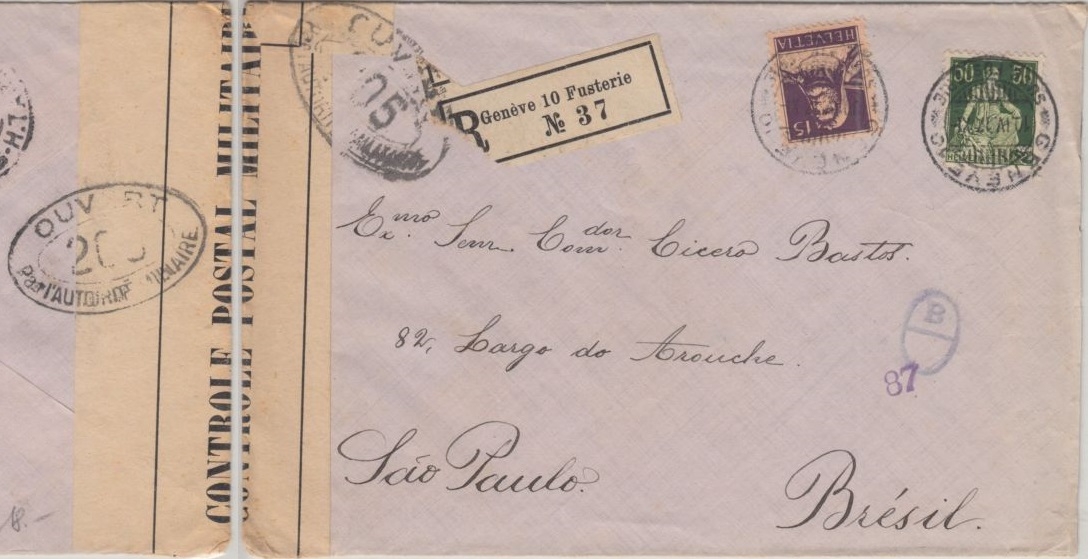 OUVERT
200
Par l'AUTORITÉ MILITAIRE
CONTROLE POSTAL MILITAIRE
OUVERT
R
Genève 10 Fusterie
№ 37
HELVETIA
15
50 50
HELVETIA
GENÈVE
Exmo. Senr. Comdor. Cicero Bastos.
82, Largo do Arouche.
São Paulo.
Brésil.
B
87